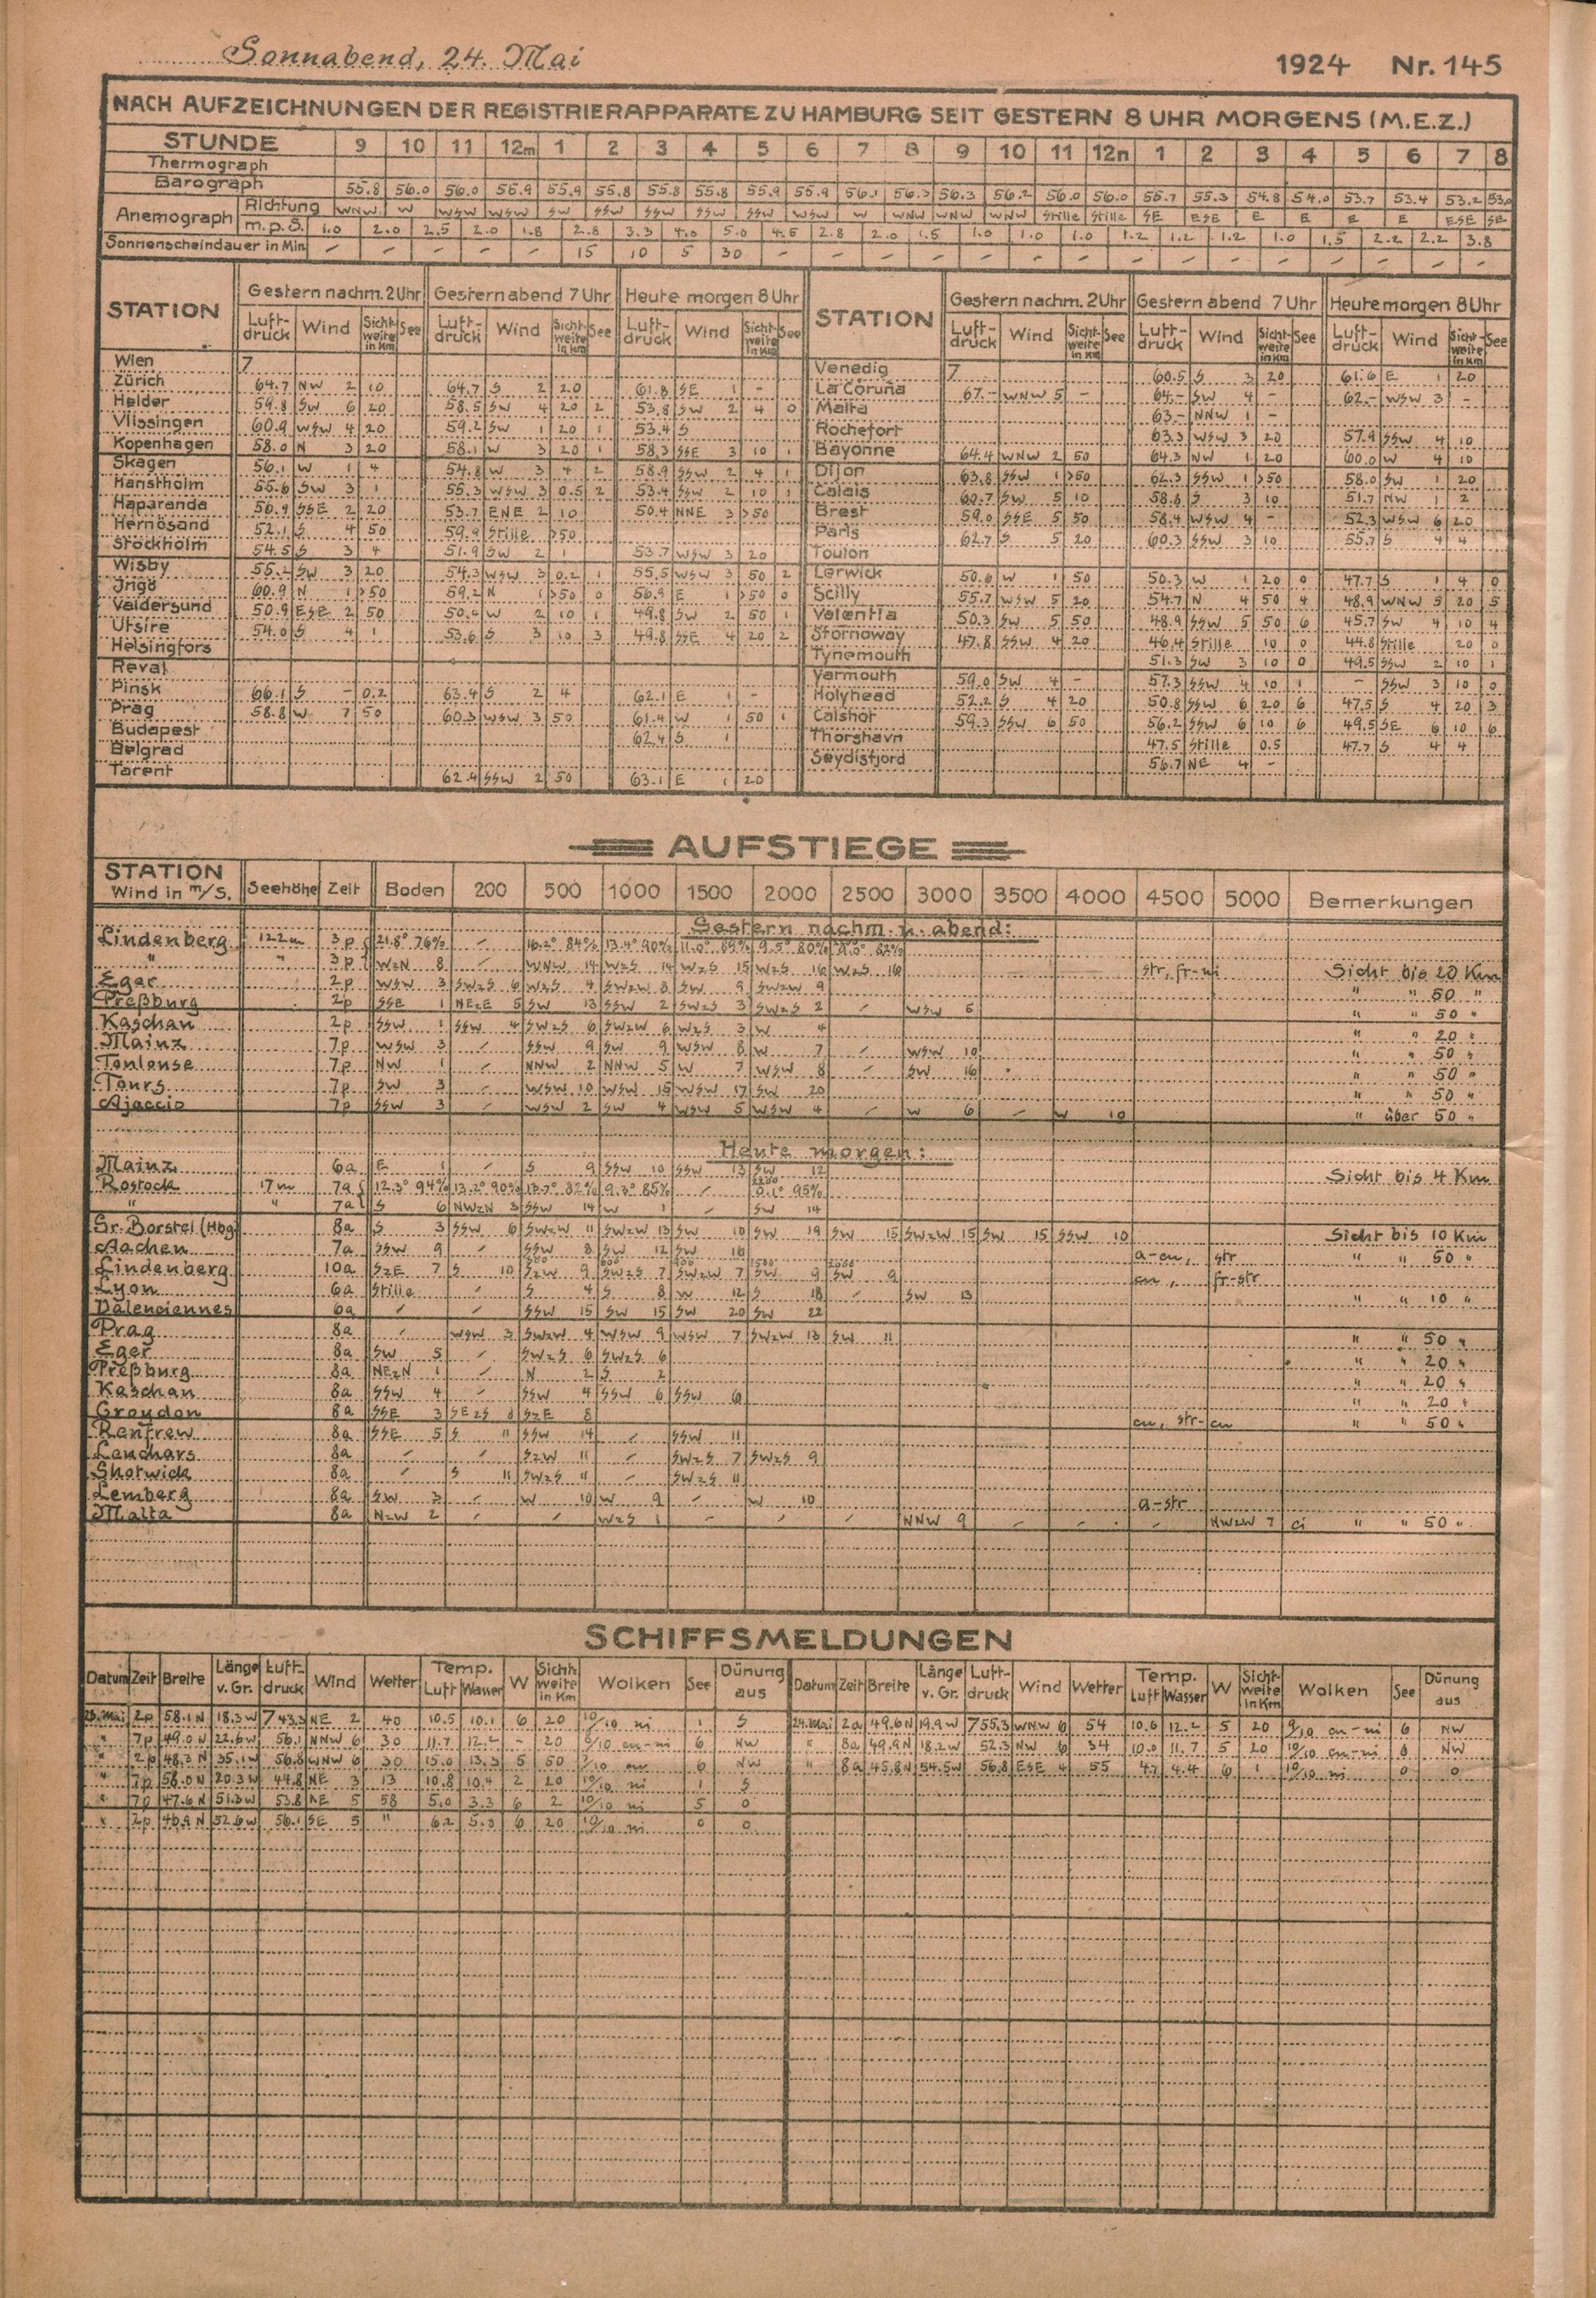 Sonnabend, 24. Mai 1924 Nr. 145
NACH AUFZEICHNUNGEN DER REGISTRIERAPPARATE ZU HAMBURG SEIT GESTERN 8 UHR MORGENS (M.E.Z.)
STUNDE 9 10 11 12m 1 2 3 4 5 6 7 8 9 10 11 12n 1 2 3 4 5 6 7 8
Thermograph
Barograph 55.8 56.0 56.0 55.9 55.9 55.8 55.8 55.8 55.9 55.9 56.1 56.3 56.3 56.2 56.0 56.0 55.7 55.3 54.8 54.0 53.7 53.4 53.2 53.0
Anemograph Richtung WNW W WSW WSW SW SSW SSW SSW SSW WSW W WNW WNW WNW Stille Stille SE ESE E E E E ESE SE
m.p.S. 1.0 2.0 2.5 2.0 1.8 2.8 3.3 4.0 5.0 4.5 2.8 2.0 1.5 1.0 1.0 1.0 1.2 1.2 1.2 1.0 1.5 2.2 2.2 3.8
Sonnenscheindauer in Min. – – – – – 15 10 5 30 – – – – – – – – – – – – – – –
STATION Gestern nachm. 2 Uhr Gestern abend 7 Uhr Heute morgen 8 Uhr STATION Gestern nachm. 2 Uhr Gestern abend 7 Uhr Heute morgen 8 Uhr
Luftdruck Wind Sichtweite in Km See Luftdruck Wind Sichtweite in Km See Luftdruck Wind Sichtweite in Km See Luftdruck Wind Sichtweite in Km See Luftdruck Wind Sichtweite in Km See Luftdruck Wind Sichtweite in Km See
Wien 7 Venedig 7 60.5 S 3 20 61.6 E 1 20
Zürich 64.7 NW 2 10 64.7 S 2 20 61.8 SE 1 – La Coruña 67.– WNW 5 – 64.– SW 4 – 62.– WSW 3 –
Helder 59.8 SW 6 20 58.5 SW 4 20 2 53.8 SW 2 4 0 Malta 63.– NNW 1 –
Vlissingen 60.9 WSW 4 20 59.2 SW 1 20 1 53.4 S Rochefort 63.3 WSW 3 20 57.9 SSW 4 10
Kopenhagen 58.0 N 3 20 58.1 W 3 20 1 58.3 SSE 3 10 1 Bayonne 64.4 WNW 2 50 64.3 NW 1 20 60.0 W 4 10
Skagen 56.1 W 1 4 54.8 W 3 4 2 58.9 SSW 2 4 1 Dijon 63.8 SSW 1 >50 62.3 SSW 1 >50 58.0 SW 1 20
Hanstholm 55.6 SW 3 1 55.3 WSW 3 0.5 2 53.4 SSW 2 10 1 Calais 60.7 SW 5 10 58.6 S 3 10 51.7 NW 1 2
Haparanda 50.9 SSE 2 20 53.7 ENE 2 10 50.4 NNE 3 >50 Brest 59.0 SSE 5 50 58.4 WSW 4 – 52.3 WSW 6 20
Hernösand 52.1 S 4 50 59.9 Stille >50 Paris 62.7 S 5 20 60.3 SSW 3 10 55.7 S 4 4
Stockholm 54.5 S 3 4 51.9 SW 2 1 53.7 WSW 3 20 Toulon
Wisby 55.2 SW 3 20 54.3 WSW 3 0.2 1 55.5 WSW 3 50 2 Lerwick 50.6 W 1 50 50.3 W 1 20 0 47.7 S 1 4 0
Jngö 60.9 N 1 >50 59.2 N 1 >50 0 56.9 E 1 >50 0 Scilly 55.7 WSW 5 20 54.7 N 4 50 4 48.9 WNW 5 20 5
Valdersund 50.9 ESE 2 50 50.4 W 2 10 1 49.8 SW 2 50 1 Valentia 50.3 SW 5 50 48.9 SSW 5 50 6 45.7 SW 4 10 4
Utsire 54.0 S 4 1 53.6 S 3 10 3 49.8 SSE 4 20 2 Stornoway 47.8 SSW 4 20 46.4 Stille 10 0 44.8 Stille 20 0
Helsingfors Tynemouth 51.3 SW 3 10 0 49.5 SSW 2 10 1
Reval Yarmouth 59.0 SW 4 – 57.3 SSW 4 10 1 – SSW 3 10 0
Pinsk 66.1 S – 0.2 63.4 S 2 4 62.1 E 1 – Holyhead 52.2 S 4 20 50.8 SSW 6 20 6 47.5 S 4 20 3
Prag 58.8 W 7 50 60.3 WSW 3 50 61.4 W 1 50 1 Calshot 59.3 SSW 6 50 56.2 SSW 6 10 6 49.5 SE 6 10 6
Budapest 62.4 S 1 Thorshavn 47.5 Stille 0.5 47.7 S 4 4
Belgrad Seydisfjord 56.7 NE 4 –
Tarent 62.4 SSW 2 50 63.1 E 1 20
AUFSTIEGE
STATION Wind in m/S. Seehöhe Zeit Boden 200 500 1000 1500 2000 2500 3000 3500 4000 4500 5000 Bemerkungen
Gestern nachm. u. abend:
Lindenberg 122m 3p 21.8° 76% – 16.2° 84% 13.4° 90% 11.0° 89% 9.5° 80% 82%
" " 3p WzN 8 – WNW 14 WzS 14 WzS 15 WzS 16 WzS 16 str, fr-ni Sicht bis 20 Km
Eger 2p WSW 3 SWzS 6 WzS 4 SWzW 8 SW 9 SWzW 9 " " 50 "
Preßburg 2p SSE 1 NEzE 5 SW 13 SSW 2 SWzS 3 SWzS 2 – WSW 6 " " 50 "
Kaschau 2p SSW 1 SSW 4 SWzS 6 SWzW 6 WzS 3 W 4 " " 20 "
Mainz 7p WSW 3 – SSW 9 SW 9 WSW 8 W 7 – WSW 10 " " 50 "
Toulouse 7p NW 1 – NNW 2 NNW 5 W 7 WSW 8 – SW 16 " " 50 "
Tours 7p SW 3 – WSW 10 WSW 15 WSW 17 SW 20 " " 50 "
Ajaccio 7p SSW 3 – WSW 2 SW 4 WSW 5 WSW 4 – W 6 – W 10 " über 50 "
Heute morgen:
Mainz 6a E 1 – S 9 SSW 10 SSW 13 SW 12 Sicht bis 4 Km
Rostock 17m 7a 12.3° 94% 13.2° 90% 13.7° 82% 9.3° 85% – 0.1° 95%
" " 7a S 6 NWzN 3 SSW 14 W 1 – SW 14
Gr. Borstel (Hbg) 8a S 3 SSW 6 SWzW 11 SWzW 13 SW 10 SW 19 SW 15 SWzW 15 SW 15 SSW 10 Sicht bis 10 Km
Aachen 7a SSW 9 – SSW 8 SW 12 SW 16 a-cu, str " " 50 "
Lindenberg 10a SzE 7 S 10 SzW 9 SWzS 7 SWzW 7 SW 9 SW 9 cu, fr-str
Lyon 6a Stille – S 4 S 8 W 12 S 18 – SW 13 " " 10 "
Valenciennes 6a – – SSW 15 SW 15 SW 20 SW 22
Prag 8a – WSW 3 SWzW 4 WSW 9 WSW 7 SWzW 13 SW 11 " " 50 "
Eger 8a SW 5 – SWzS 6 SWzS 6 " " 20 "
Preßburg 8a NEzN 1 – N 2 S 2 " " 20 "
Kaschau 8a SSW 4 – SSW 4 SSW 6 SSW 6 " " 20 "
Croydon 8a SSE 3 SEzS 8 SzE 8 cu, str-cu " " 50 "
Renfrew 8a SSE 5 S 11 SSW 14 – SSW 11
Leuchars 8a – – SzW 11 – SWzS 7 SWzS 9
Shotwick 8a – S 11 SWzS 11 – SWzS 11
Lemberg 8a SW 3 – W 10 W 9 – W 10 a-str
Malta 8a NzW 2 – – WzS 1 – – – NNW 9 – – – NWzW 7 ci " " 50 "
SCHIFFSMELDUNGEN
Datum Zeit Breite Länge v. Gr. Luftdruck Wind Wetter Temp. Luft Wasser W Sichtweite in Km Wolken See Dünung aus Datum Zeit Breite Länge v. Gr. Luftdruck Wind Wetter Temp. Luft Wasser W Sichtweite in Km Wolken See Dünung aus
23. Mai 2p 58.1 N 18.3 W 743.3 NE 2 40 10.5 10.1 6 20 10/10 ni 1 S 24. Mai 2a 49.6 N 19.9 W 755.3 WNW 6 54 10.6 12.2 5 20 9/10 cu-ni 6 NW
" 7p 49.0 N 22.6 W 56.1 NNW 6 30 11.7 12.2 – 20 8/10 cu-ni 6 NW " 8a 49.9 N 18.2 W 52.3 NW 6 34 10.0 11.7 5 20 10/10 cu-ni 6 NW
" 2p 48.3 N 35.1 W 56.8 WNW 6 30 15.0 13.3 5 50 cu 6 NW " 8a 45.8 N 54.5 W 56.8 ESE 4 55 4.7 4.4 6 1 10/10 ni 0 0
" 7p 58.0 N 20.3 W 44.8 NE 3 13 10.8 10.4 2 20 10/10 ni 1 S
" 7p 47.6 N 51.3 W 53.8 NE 5 58 5.0 3.3 6 2 10/10 ni 5 0
" 2p 46.9 N 52.6 W 56.1 SE 5 " 6.2 5.3 6 20 10/10 ni 0 0